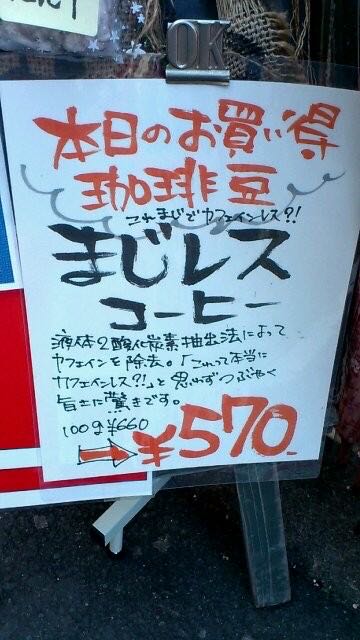 OK
本日のお買い得
珈琲豆
これまじでカフェインレス?!
まじレス
コーヒー
液体2酸化炭素抽出法によって
カフェインを除去。「これって本当に
カフェインレス?!」と思わずつぶやく
旨さに驚きです。
100g¥660
¥570.